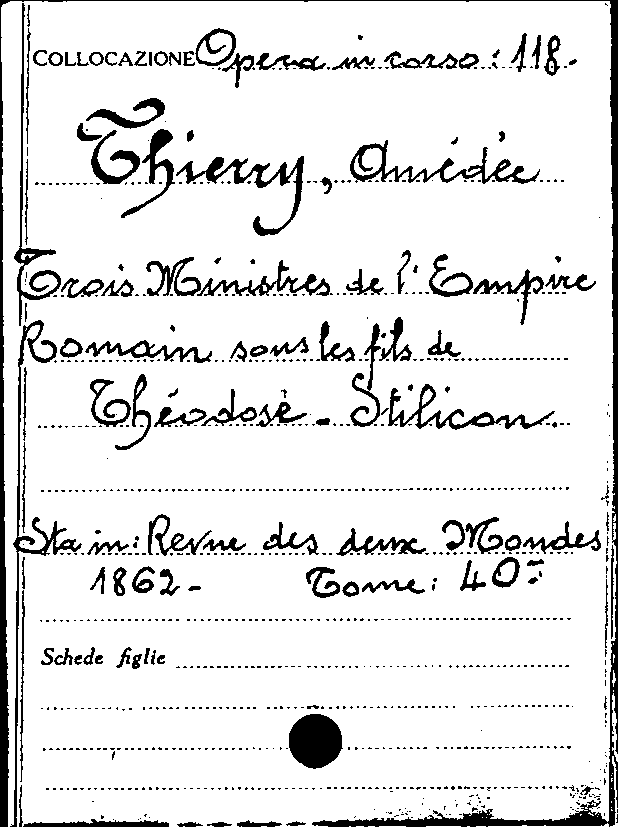 COLLOCAZIONE Opera in corso: 118.
Thierry, Amédée
Trois Ministres de l'Empire
Romain sous les fils de
Théodose - Stilicon.
Sta in: Revue des deux Mondes
1862 - Tome: 40º
Schede figlie